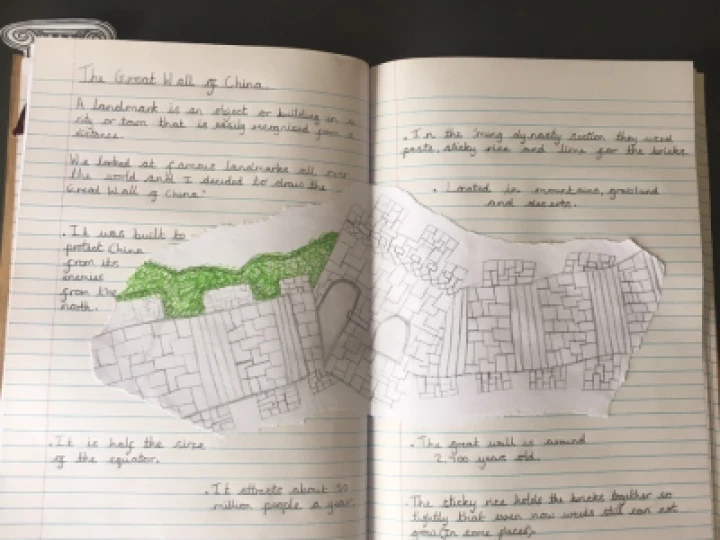 The Great Wall of China.
A landmark is an object or building in a
city or town that is easily recognised from a
distance.
We looked at famous landmarks all over
the world and I decided to draw the
Great Wall of China.
. It was built to
protect China
from its
enemies
from the
north.
. It is half the size
of the equator.
. It attracts about
million people a year.
. In the Ming dynasty section they used
paste, sticky rice and lime for the bricks
. Located in mountains, grassland
and deserts.
. The great wall is around
2,400 years old.
. The sticky rice holds the bricks together so
tightly that even now weeds still can not
grow (In some places).